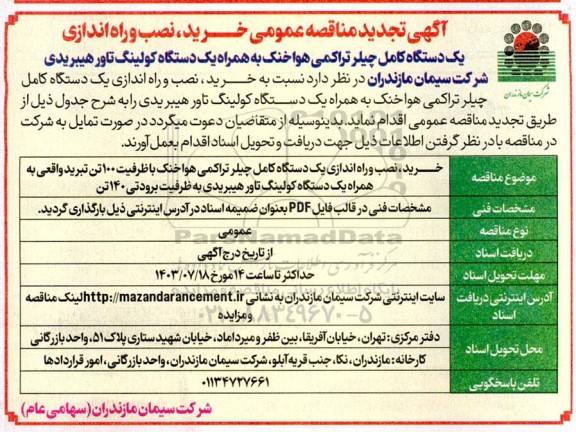 آگهی تجدید مناقصه عمومی خـــرید، نصب و راه اندازی
یک دستگاه کامل چیلر تراکمی هوا خنک به همراه یک دستگاه کولینگ تاور هیبریدی
شرکت سیمان مازندران
شرکت سیمان مازندران در نظر دارد نسبت به خـــرید، نصب و راه اندازی یک دستگاه کامل
چیلر تراکمی هوا خنک به همراه یک دستـگاه کولینگ تاور هیبریدی را به شرح جدول ذیل از
طریق تجدید مناقصه عمومی اقدام نماید. بدینوسیله از متقاضیان دعوت میگردد در صورت تمایل به شرکت
در مناقصه با در نظر گرفتن اطلاعات ذیل جهت دریافت و تحویل اسناد اقدام بعمل آورند.
موضوع مناقصه
خـــرید، نصب و راه اندازی یک دستگاه کامل چیلر تراکمی هوا خنک با ظرفیت ۱۰۰ تن تبرید واقعی به
همراه یک دستگاه کولینگ تاور هیبریدی به ظرفیت برودتی ۱۴۰ تن
مشخصات فنی
مشخصات فنی در قالب فایل PDF بعنوان ضمیمه اسناد در آدرس اینترنتی ذیل بارگذاری گردید.
نوع مناقصه
عمومی
دریافت اسناد
از تاریخ درج آگهی
مهلت تحویل اسناد
حداکثر تا ساعت ۱۴ مورخ ۱۴۰۳/۰۷/۱۸
آدرس اینترنتی دریافت
اسناد
سایت اینترنتی شرکت سیمان مازندران به نشانی http://mazandarancement.ir لینک مناقصه
و مزایده
محل تحویل اسناد
دفتر مرکزی: تهران، خیابان آفریقا، بین ظفر و میرداماد، خیابان شهید ستاری پلاک ۵۱، واحد بازرگانی
کارخانه: مازندران، نکا، جنب قریه آبلو، شرکت سیمان مازندران، واحد بازرگانی، امور قراردادها
تلفن پاسخگویی
۰۱۱۳۴۷۲۷۶۶۱
ParsNamadData
۰۲۱-۸۸۳۴۹۶۷۰-۵
شرکت سیمان مازندران (سهامی عام)